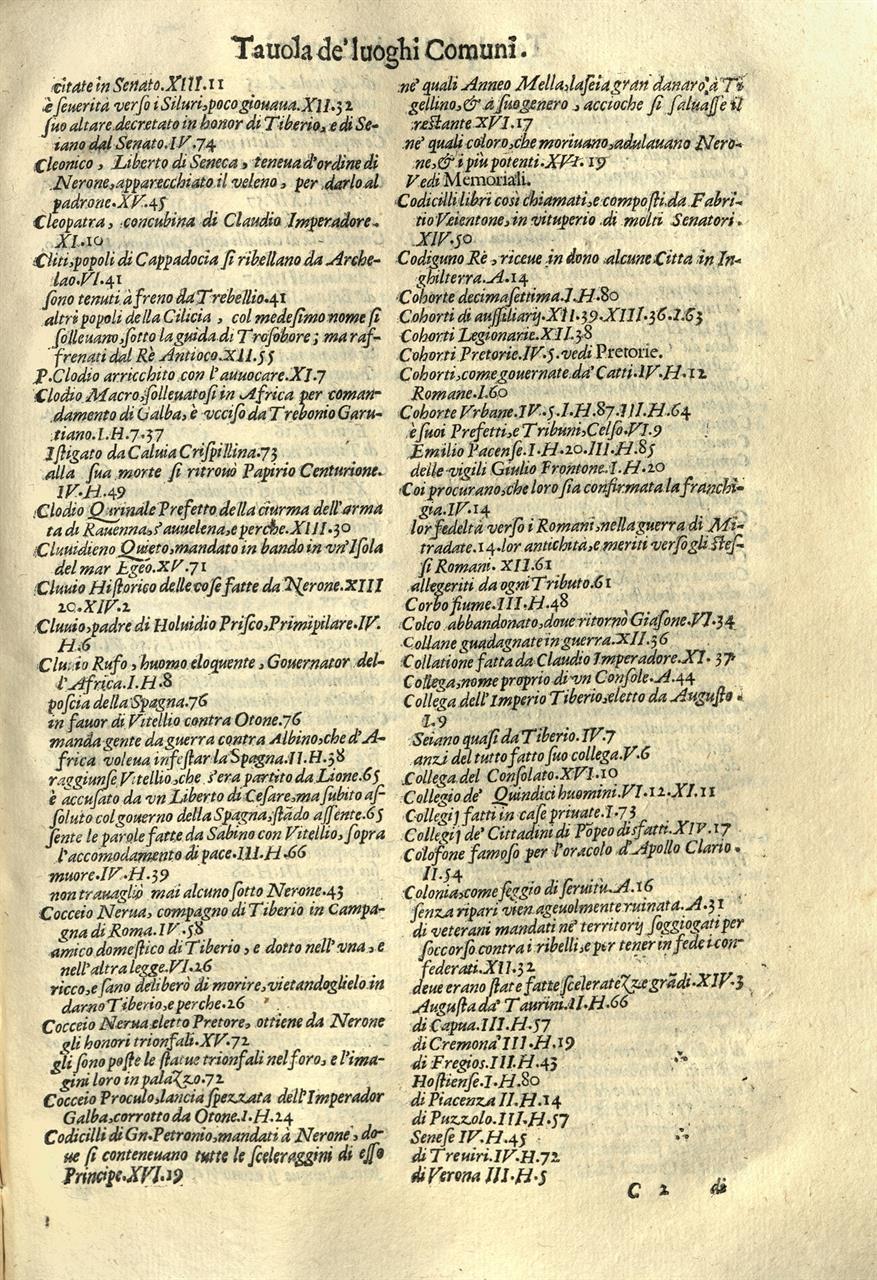 Tauola de' luoghi Comuni.
citate in Senato.XIII.11
è seuerità verso i Siluri, poco giouaua.XII.32
suo altare decretato in honor di Tiberio, e di Se-
iano dal Senato.IV.74
Cleonico, Liberto di Seneca, teneua d'ordine di
Nerone, apparecchiato il veleno, per darlo al
padrone.XV.45
Cleopatra, concubina di Claudio Imperadore.
XI.10
Cliti, popoli di Cappadocia si ribellano da Arche-
lao.VI.41
sono tenuti à freno da Trebellio.41
altri popoli della Cilicia, col medesimo nome si
solleuano, sotto la guida di Trosobore; ma raf-
frenati dal Rè Antioco.XII.55
P.Clodio arricchito con l'auuocare.XI.7
Clodio Macro, solleuatosi in Africa per coman-
damento di Galba, è vcciso da Trebonio Garu-
tiano.I.H.7.37
Istigato da Caluia Crispillina.73
alla sua morte si ritrouò Papirio Centurione.
IV.H.49
Clodio Qurinale Prefetto della ciurma dell'arma
ta di Rauenna, s'auuelena, e perche.XIII.30
Cluuidieno Quieto, mandato in bando in vn'Isola
del mar Egeo.XV.71
Cluuio Historico delle cose fatte da Nerone.XIII
20.XIV.2
Cluuio, padre di Holuidio Prisco, Primipilare.IV.
H.6
Cluuio Rufo, huomo eloquente, Gouernator del-
l'Africa.I.H.8
poscia della Spagna.76
in fauor di Vitellio contra Otone.76
manda gente da guerra contra Albino, che d'A-
frica voleua infestar la Spagna.II.H.38
raggiunse Vitellio, che s'era partito da Lione.65
è accusato da vn Liberto di Cesare, ma subito as-
soluto col gouerno della Spagna, stãdo assente.65
sente le parole fatte da Sabino con Vitellio, sopra
l'accomodamento di pace.III.H.66
muore.IV.H.39
non trauagliò mai alcuno sotto Nerone.43
Cocceio Nerua, compagno di Tiberio in Campa-
gna di Roma.IV.58
amico domestico di Tiberio, e dotto nell'vna, e
nell'altra legge.VI.26
ricco, e sano deliberò di morire, vietandoglielo in
darno Tiberio, e perche.26
Cocceio Nerua eletto Pretore, ottiene da Nerone
gli honori trionfali.XV.72
gli sono poste le statue trionfali nel foro, e l'ima-
gini loro in palazzo.72
Cocceio Proculo, lancia spezzata dell'Imperador
Galba, corrotto da Otone.I.H.24
Codicilli di Gn.Petronio, mandati à Nerone, do-
ue si conteneuano tutte le sceleraggini di esso
Principe.XVI.19
ne' quali Anneo Mella, lascia gran danaro, à Ti
gellino, & à suo genero, accioche si saluasse il
restante XVI.17
ne' quali coloro, che moriuano, adulauano Nero-
ne, & i piu potenti.XVI.19
Vedi Memoriali.
Codicilli libri così chiamati, e composti da Fabri-
tio Veientone, in vituperio di molti Senatori.
XIV.50
Codiguno Rè, riceue in dono alcune Citta in In-
ghilterra.A.14
Cohorte decimasettima.I.H.80
Cohorti di aussiliarij.XII.39.XIII.36.I.63
Cohorti Legionarie.XII.38
Cohorti Pretorie.IV.5.vedi Pretorie.
Cohorti, come gouernate da' Catti.IV.H.12
Romane.I.60
Cohorte Vrbane.IV.5.I.H.87.III.H.64
è suoi Prefetti, e Tribuni, Celso.VI.9
Emilio Pacense.I.H.20.III.H.85
delle vigili Giulio Frontone.I.H.20
Coi procurano, che loro sia confirmata la franchi-
gia.IV.14
lor fedeltà verso i Romani, nella guerra di Mi-
tradate.14.lor antichità, e meriti verso gli stes-
si Romani. XII.61
allegeriti da ogni Tributo.61
Corbo fiume.III.H.48
Colco abbandonato, doue ritornò Giasone.VI.34
Collane guadagnate in guerra.XII.36
Collatione fatta da Claudio Imperadore.XI.37
Collega, nome proprio di vn Console.A.44
Collega dell'Imperio Tiberio, eletto da Augusto.
I.9
Seiano quasi da Tiberio.IV.7
anzi del tutto fatto suo collega.V.6
Collega del Consolato.XVI.10
Collegio de' Quindici huomini.VI.12.XI.11
Collegij fatti in case priuate.I.73
Collegij de' Cittadini di Põpeo disfatti.XIV.17
Colofone famoso per l'oracolo d'Apollo Clario.
II.54
Colonia, come seggio di seruitu.A.16
senza ripari vien ageuolmente ruinata.A.31
di veterani mandati ne' territorij soggiogati per
soccorso contra i ribelli, e per tener in fede i con-
federati.XII.32
deue erano state fatte sceleratezze grãdi.XIV.3
Augusta da' Taurini.II.H.66
di Capua.III.H.57
di Cremona III.H.19
di Fregios.III.H.43
Hostiense.I.H.80
di Piacenza II.H.14
di Puzzolo.III.H.57
Senese IV.H.45
di Treuiri.IV.H.72
di Verona III.H.5
C 2 di